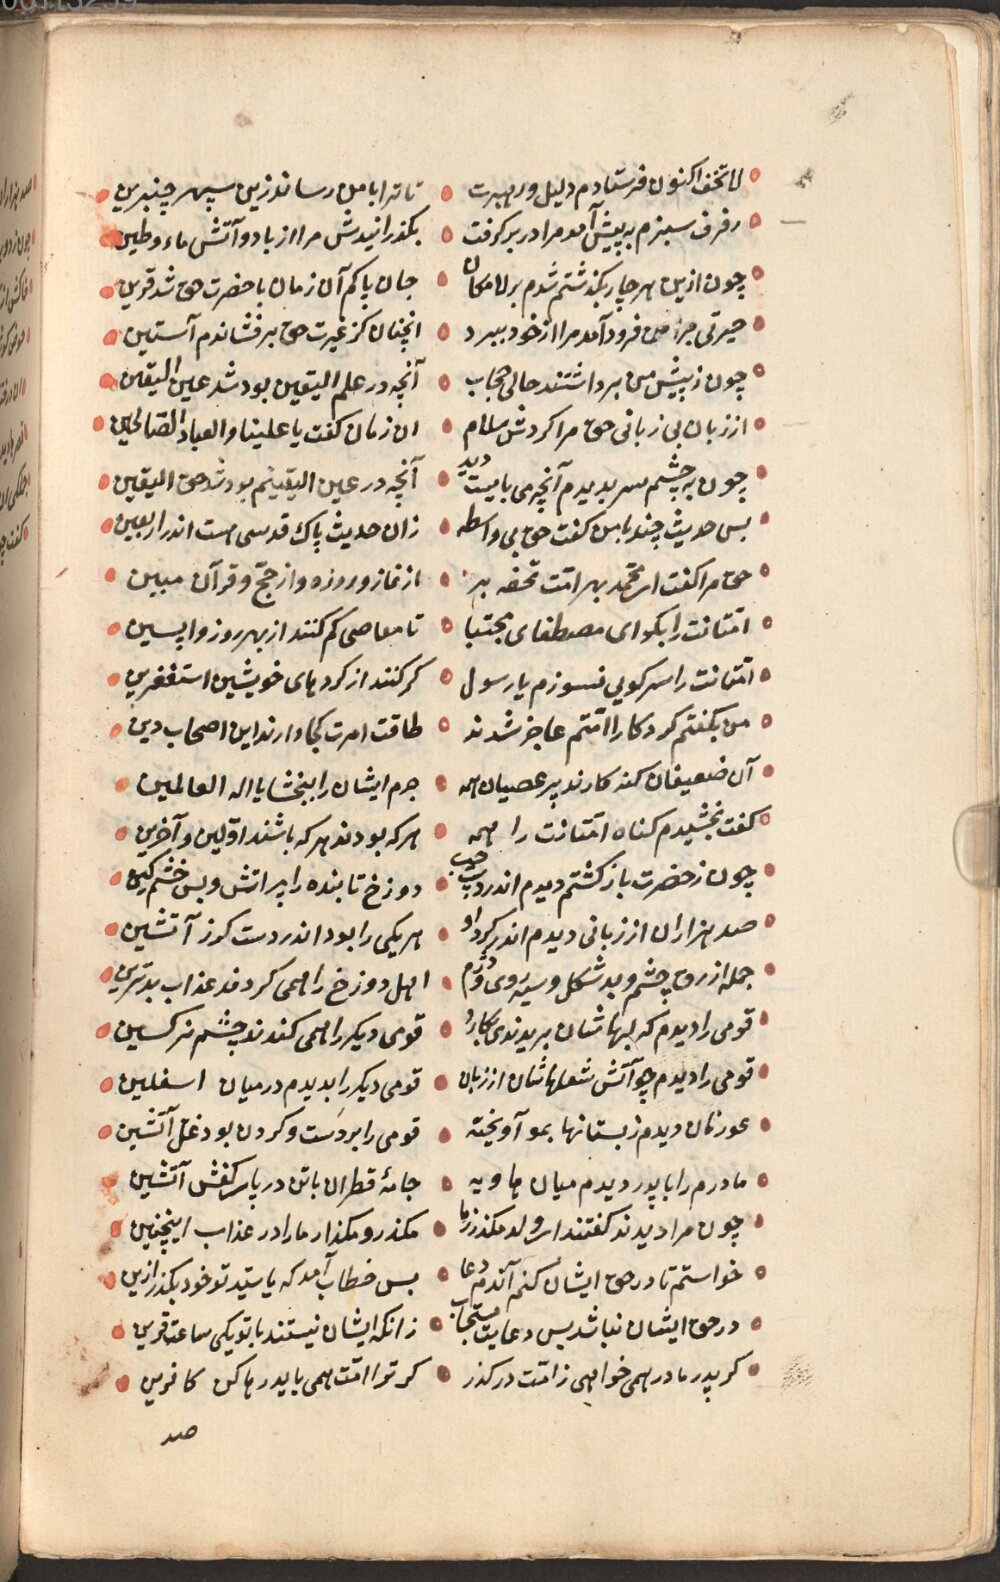 لا تخف اکنون فرستادم دلیل و رهبرت تا ترا با من رساند زین سپهر چنبرین
رفرف سبزم به پیش آمد مرا در بر کرفت بکذرانیدش مرا از باد و آتش ماء وطین
چون ازین هر چار بکذشتم شدم بر لامکان جان پاکم آن زمان با حضرت حق شد قرین
حیرتی بر من فرود آمد مرا از خود ببرد انچنان کز غیرت حق بر فشاندم آستین
چون ز پیش من برداشتند حالی حجاب آنچه در علم الیقین بود شد عین الیقین
از زبان بی زبانی حق مرا کردش سلام ان زمان کفت یا علینا و العباد الصالحین
چون به چشم سر بدیدم آنچه می بایست دید آنچه در عین الیقینم بود شد حق الیقین
بس حدیث چند با من کفت حق بی واسطه زان حدیث پاک قدسی هست اندر اربعین
حق مرا کفت ای محمد بهر امت تحفه بر از نماز و روزه و از حج و قرآن مبین
امتانت را بکو ای مصطفای مجتبا تا معاصی کم کنند از بهر روز واپسین
امتانت را سر کویی نسوزم یا رسول کر کنند از کردهای خویشین استغفرین
من بکفتم کردکارا امتم عاجز شدند طاقت امرت کجا دارند این اصحاب دین
آن ضعیفان کنه کارند پر عصیان همه جرم ایشان را ببخشا یا اله العالمین
کفت بخشیدم کناه امتانت را همه هر که بودند هر که باشند اولین و آخرین
چون ز حضرت باز کشتم دیدم اندر دست چپ دوزخ تابنده را پر آتش و بس خشم کین
صد هزاران از زبانی دیدم اندر کرد او هر یکی را بود اندر دست کرز آتشین
جمله ازرق چشم و بد شکل و سیه روی و دژم اهل دوزخ را همی کردند عذاب بدترین
قومی را دیدم که لبهاشان بریدندی بکارد قومی دیکر را همی کندند چشم نرکسین
قومی را دیدم چو آتش شعلهاشان از زبان قومی دیکر را بدیدم در میان اسفلین
عورتان دیدم ز بستانها بمو آویخته قومی را بر دست و کردن بود غل آتشین
مادرم را با پدر دیدم میان هاویه جامۀ قطران با تن در پای کفش آتشین
چون مرا دیدند کفتند ای ولد مکذر ز ما مکذر و مکذار ما را در عذاب اینچنین
خواستم تا در حق ایشان کنم آندم دعا بس خطاب آمد که یا سید تو خود بکذر ازین
در حق ایشان نباشد بس دعایت مستجاب زانکه ایشان نیستند با تو یکی ساعت قرین
کر پدر مادر همی خواهی ز امت در کذر کر ترا امت همی باید رها کن کافرین
صد